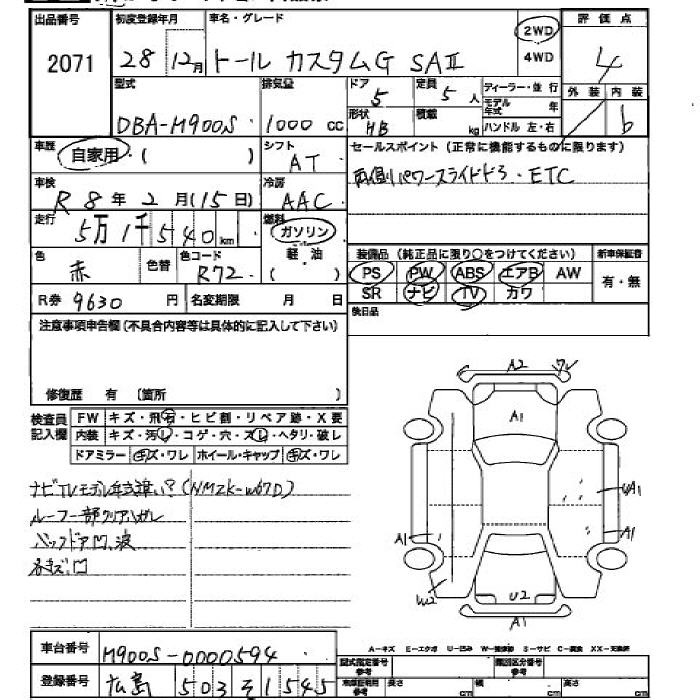 出品番号 初度登録年月 車名・グレード 2WD 評価点
2071 28 12月 トール カスタムG SAⅡ 4WD 4
型式 排気量 ドア 定員 ディーラー・並行 外装 内装
DBA-M900S 1000 cc 5 5人 モデル年式 年 b
形状 HB 積載 kg ハンドル 左・右
車歴 自家用・( ) シフト AT セールスポイント(正常に機能するものに限ります)
車検 R8年2月(15日) 冷房 AAC 両側パワースライドドア・ETC
走行 5万1千540km 燃料 ガソリン
軽油
( )
色 赤 色替 色コード R72 装備品(純正品に限り○をつけてください) 新車保証書
PS PW ABS エアB AW 有・無
SR ナビ TV カワ
R券 9630円 名変期限 月 日 後日品
注意事項申告欄(不具合内容等は具体的に記入して下さい)
修復歴 有 〔箇所 〕
検査員記入欄 FW キズ・飛石・ヒビ割・リペア跡・X要
内装 キズ・汚レ・コゲ・穴・ズレ・ヘタリ・破レ
ドアミラー キズ・ワレ ホイール・キャップ キズ・ワレ
ナビTVモデル年式違い?(NMZK-W67D)
ルーフ一部クリアハガレ
バックドア凹、波
各キズ、凹
A2 W
A1
UA1
A1 A1
W2 U2
A1
A-キズ E-エクボ U-凹み W-補修跡 S-サビ C-腐食 XX-交換済
車台番号 M900S-0000594
登録番号 広島 503 そ 1545
型式指定番号 参考 類別区分番号 参考
参考 長さ cm 幅 cm 高さ cm